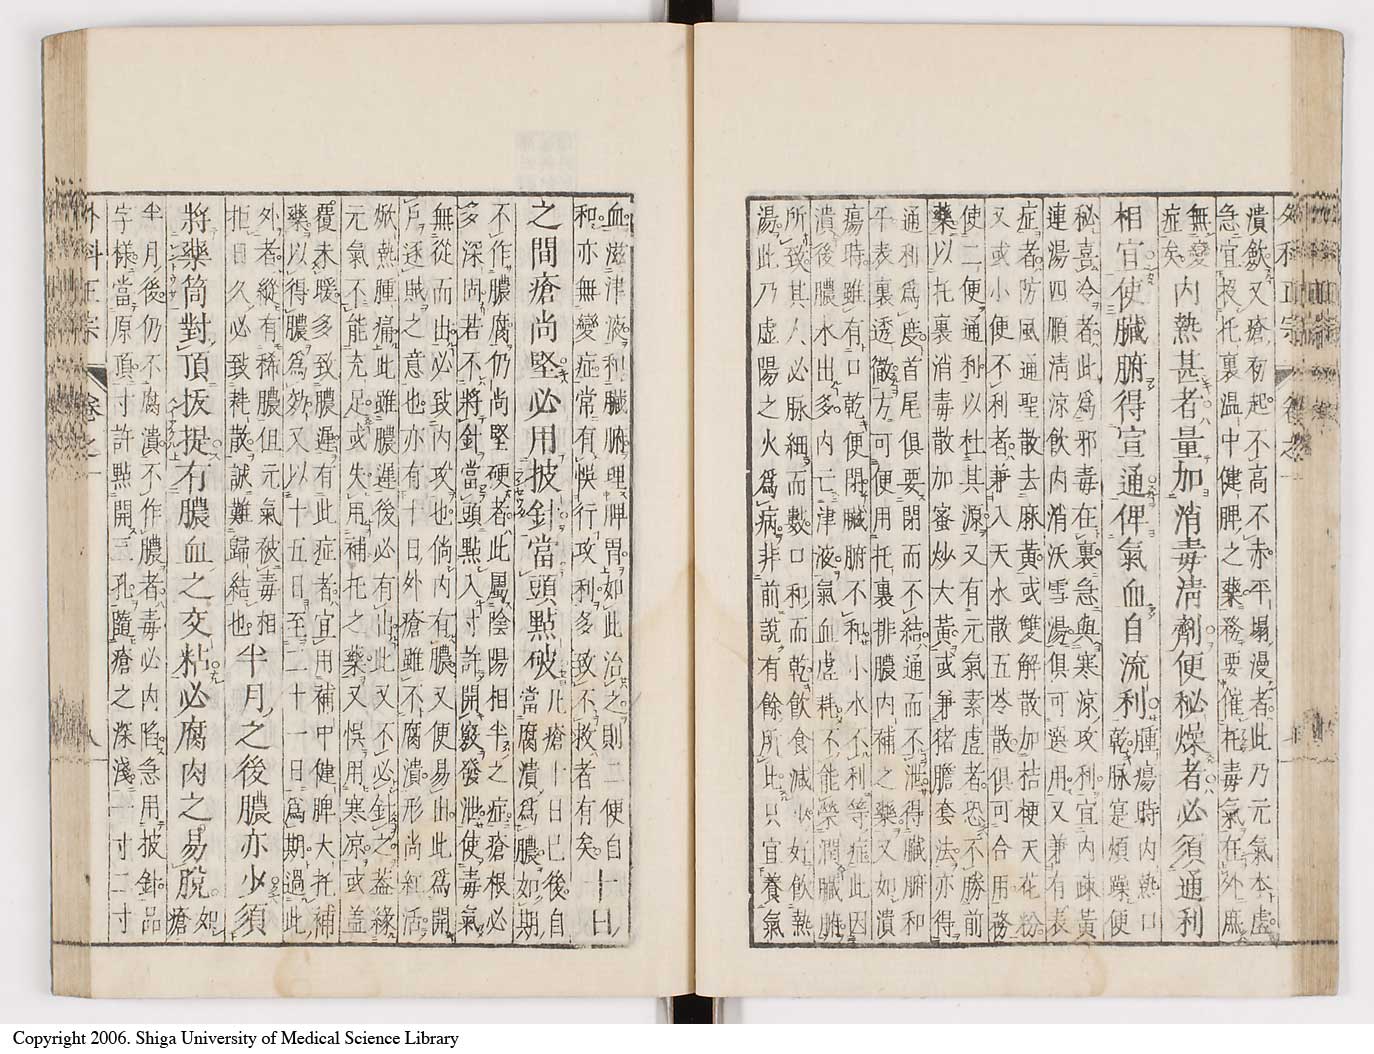 外科正宗 卷之一
潰歛又瘡有起不高不赤平塌漫者此乃元氣本虛
急宜投托裏溫中健脾之藥務要催托毒氣在外庶
無變
症矣
内熱甚者量加消毒清劑便秘燥者必須通利
相宜使臟腑得宣通俾氣血自流利
腫瘍時内熱口
乾脉寔煩躁便
秘喜冷者此爲邪毒在裏急與寒凉攻利宜内疎黃
連湯四順淸涼飲内消沃雪湯俱可選用又兼有表
症者防風通聖散去麻黃或雙解散加桔梗天花粉
又或小便不利者兼入天水散五苓散俱可合用務
使二便通利以杜其源又有元氣素虛者恐不勝前
藥以托裏消毒散加蜜炒大黃或兼猪膽套法亦得
通利爲度首尾俱要閉而不結通而不泄得臟腑和
平表裏透徹方可便用托裏排膿内補之藥又如潰
瘍時雖有口乾便閉臟腑不和小水不利等症此因
潰後膿水出多内亡津液氣血虛耗不能榮潤臟腑
所致其人必脉細而數口和而乾飲食減少好飲熱
湯此乃虛陽之火爲病非前說有餘所比只宜養氣
血滋津液和臟腑理脾胃如此治之則二便自
和亦無變症常有悞行攻利多致不救者有矣
十日
之間瘡尚堅必用披針當頭點破
凡瘡十日已後自
當腐潰爲膿如期
不作膿腐仍尚堅硬者此屬陰陽相半之症瘡根必
多深固若不將針當頭點入寸許開竅發泄使毒氣
無從而出必致内攻也倘内有膿又便易出此爲開
戶逐賊之意也亦有十日外瘡雖不腐潰形尚紅活
焮熱腫痛此雖膿遲後必有出此又不必針之葢緣
元氣不能充足或失用補托之藥又悞用寒凉或盖
覆未暖多致膿遲有此症者宜用補中健脾大托補
藥以得膿爲効又以十五日至二十一日爲期過此
外者縱有稀膿但元氣被毒相
拒日久必致耗散誠難歸結也
半月之後膿亦少須
將藥筒對頂拔提有膿血之交粘必腐肉之易脫
如
瘡
半月後仍不腐潰不作膿者毒必内陷急用披針品
字樣當原頂寸許點開三孔隨瘡之深淺一寸二寸
外科正宗 卷之一 八
Copyright 2006. Shiga University of Medical Science Library